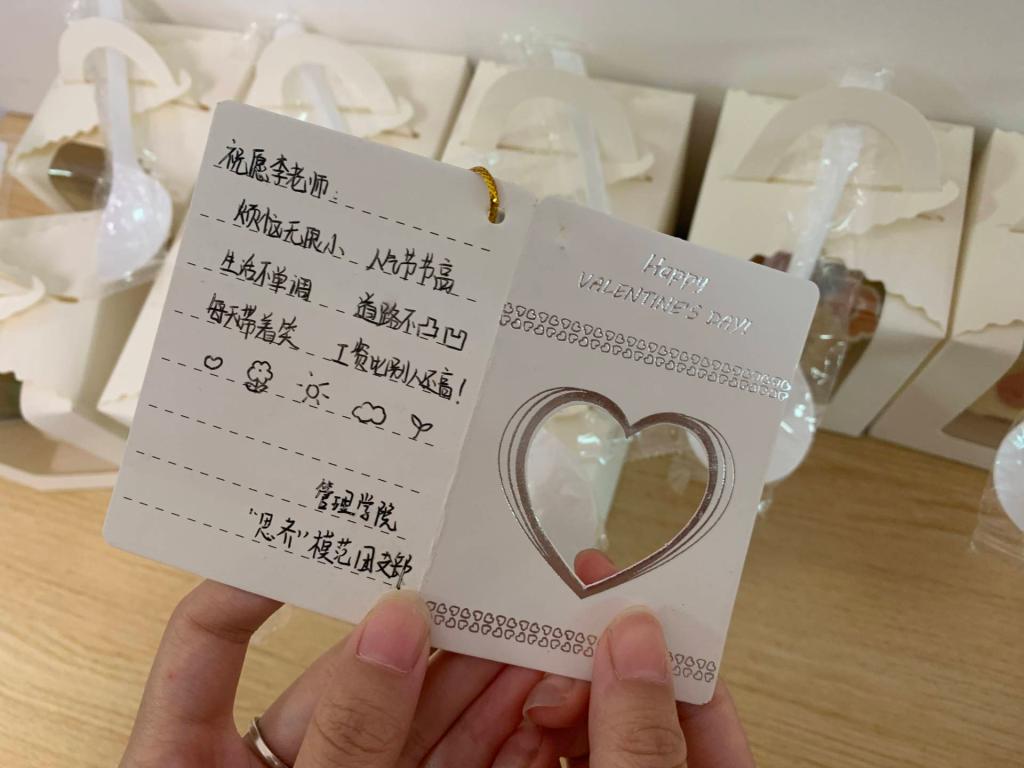 祝愿李老师:
烦恼无限小 人气节节高
生活不单调 道路不凸凹
每天带着笑 工资比别人还高!
管理学院
"思齐"模范团支部
Happy
VALENTINE'S DAY!